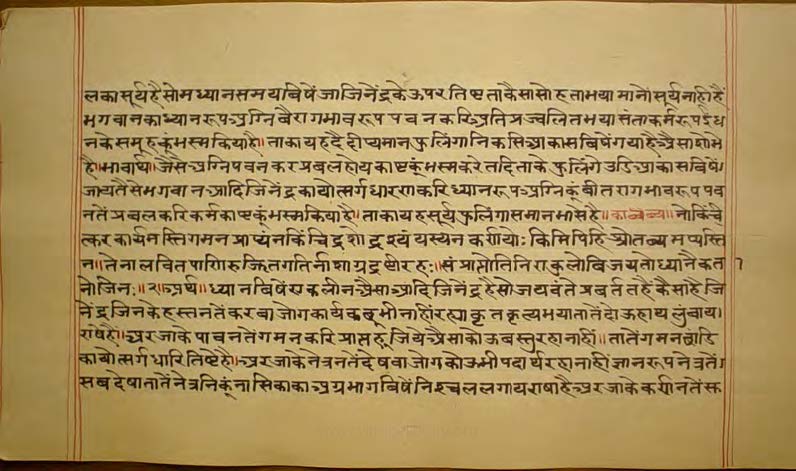 लकासूर्यहैसोमध्यानसमयाबिषेंजाजिनेंद्रकेऊपरतिष्टताकैसासोहताभयामानोंसूर्यनाहींहैं
भगवानकाध्यानरूपअग्निबैरागभावरूपपवनकरिप्रतिप्रज्वलितभयासंताकर्मरूपईंध
नकेसमूहकूंभस्मकियाहै॥ताकायहदैदीप्यमानफुलिंगानिकसिआकासबिषेंगयाहैअैसाशोभै
है॥भावार्थ॥जैसैंअग्निपवनकरप्रबलहोयकाष्टकूंभस्मकरेतदिताकेफुलिंगेउडिआकासबिषें
जायतैसेंभगवानआदिजिनेंद्रकायोत्सर्गधारणकरिध्यानरूपअग्निकूंबीतरागभावरूपपव
नतेंप्रबलकरिकर्मकाष्टकूंभस्मकियाहै॥ताकायहसूर्यफुलिंगासमानभासेहै॥काव्य॥नोकिंचि
त्करकार्यमस्तिगमनप्राप्यंनकिंचिद्दृशोर्दृश्यंयस्यनकर्णयोःकिमपिहिश्रोतव्यमप्यस्ति
न॥तेनालंवितपाणिरुज्झितगतिर्नासाग्रदृष्टीरहः॥संप्राप्तोतिनिराकुलोबिजयताध्यानैकत
नोजिनः॥२॥अर्थ॥ध्यानबिषेंएकलीनअैसाआदिजिनेंद्रहैसोजयवंतेप्रबर्ततहैकैसाहैजि
नेंद्रजिनकेहस्तनतेंकरबाजोगकार्यकछूभीनाहींरह्याकृतकृत्यभयातातेंदोऊहाथलुंबाय।
राषेहै॥अरजाकेपावनतेंगमनकरिप्राप्तहूजियेअैसाकोऊबस्तुरहानाहीं॥तातेंगमनछांडि
काबोत्सर्गधारितिष्टेहै॥अरजाकेनेत्रनतेंदेषवाजोगकोऊभीपदार्थरहानाहींज्ञानरूपनेत्रतें।
सबदेषातातेंनेत्रनिकूंनासिकाकाअग्रभागबिषेंनिश्चललगायराषाहैअरजाकेकर्णनतेंस
१